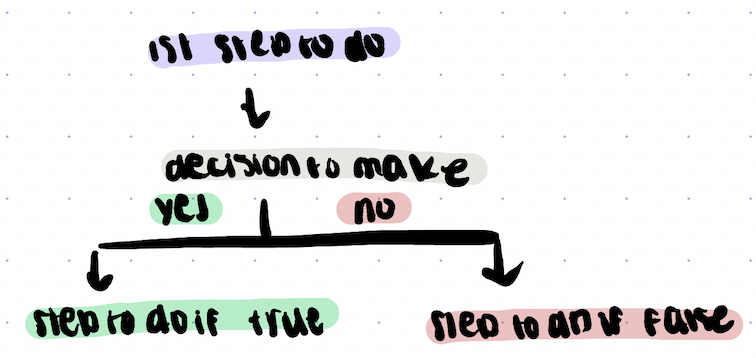 1st step to do
decision to make
yes no
step to do if true
step to do if false